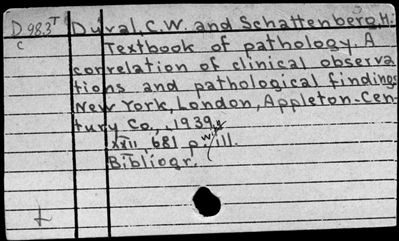 D 983 T Duval, C.W. and Schattenberg, H.
c Textbook of pathology. A
correlation of clinical observa
tions and pathological findings
New York, London, Appleton-Cen-
tury Co., 1939.
xxii, 681 p. ill.
Bibliogr.